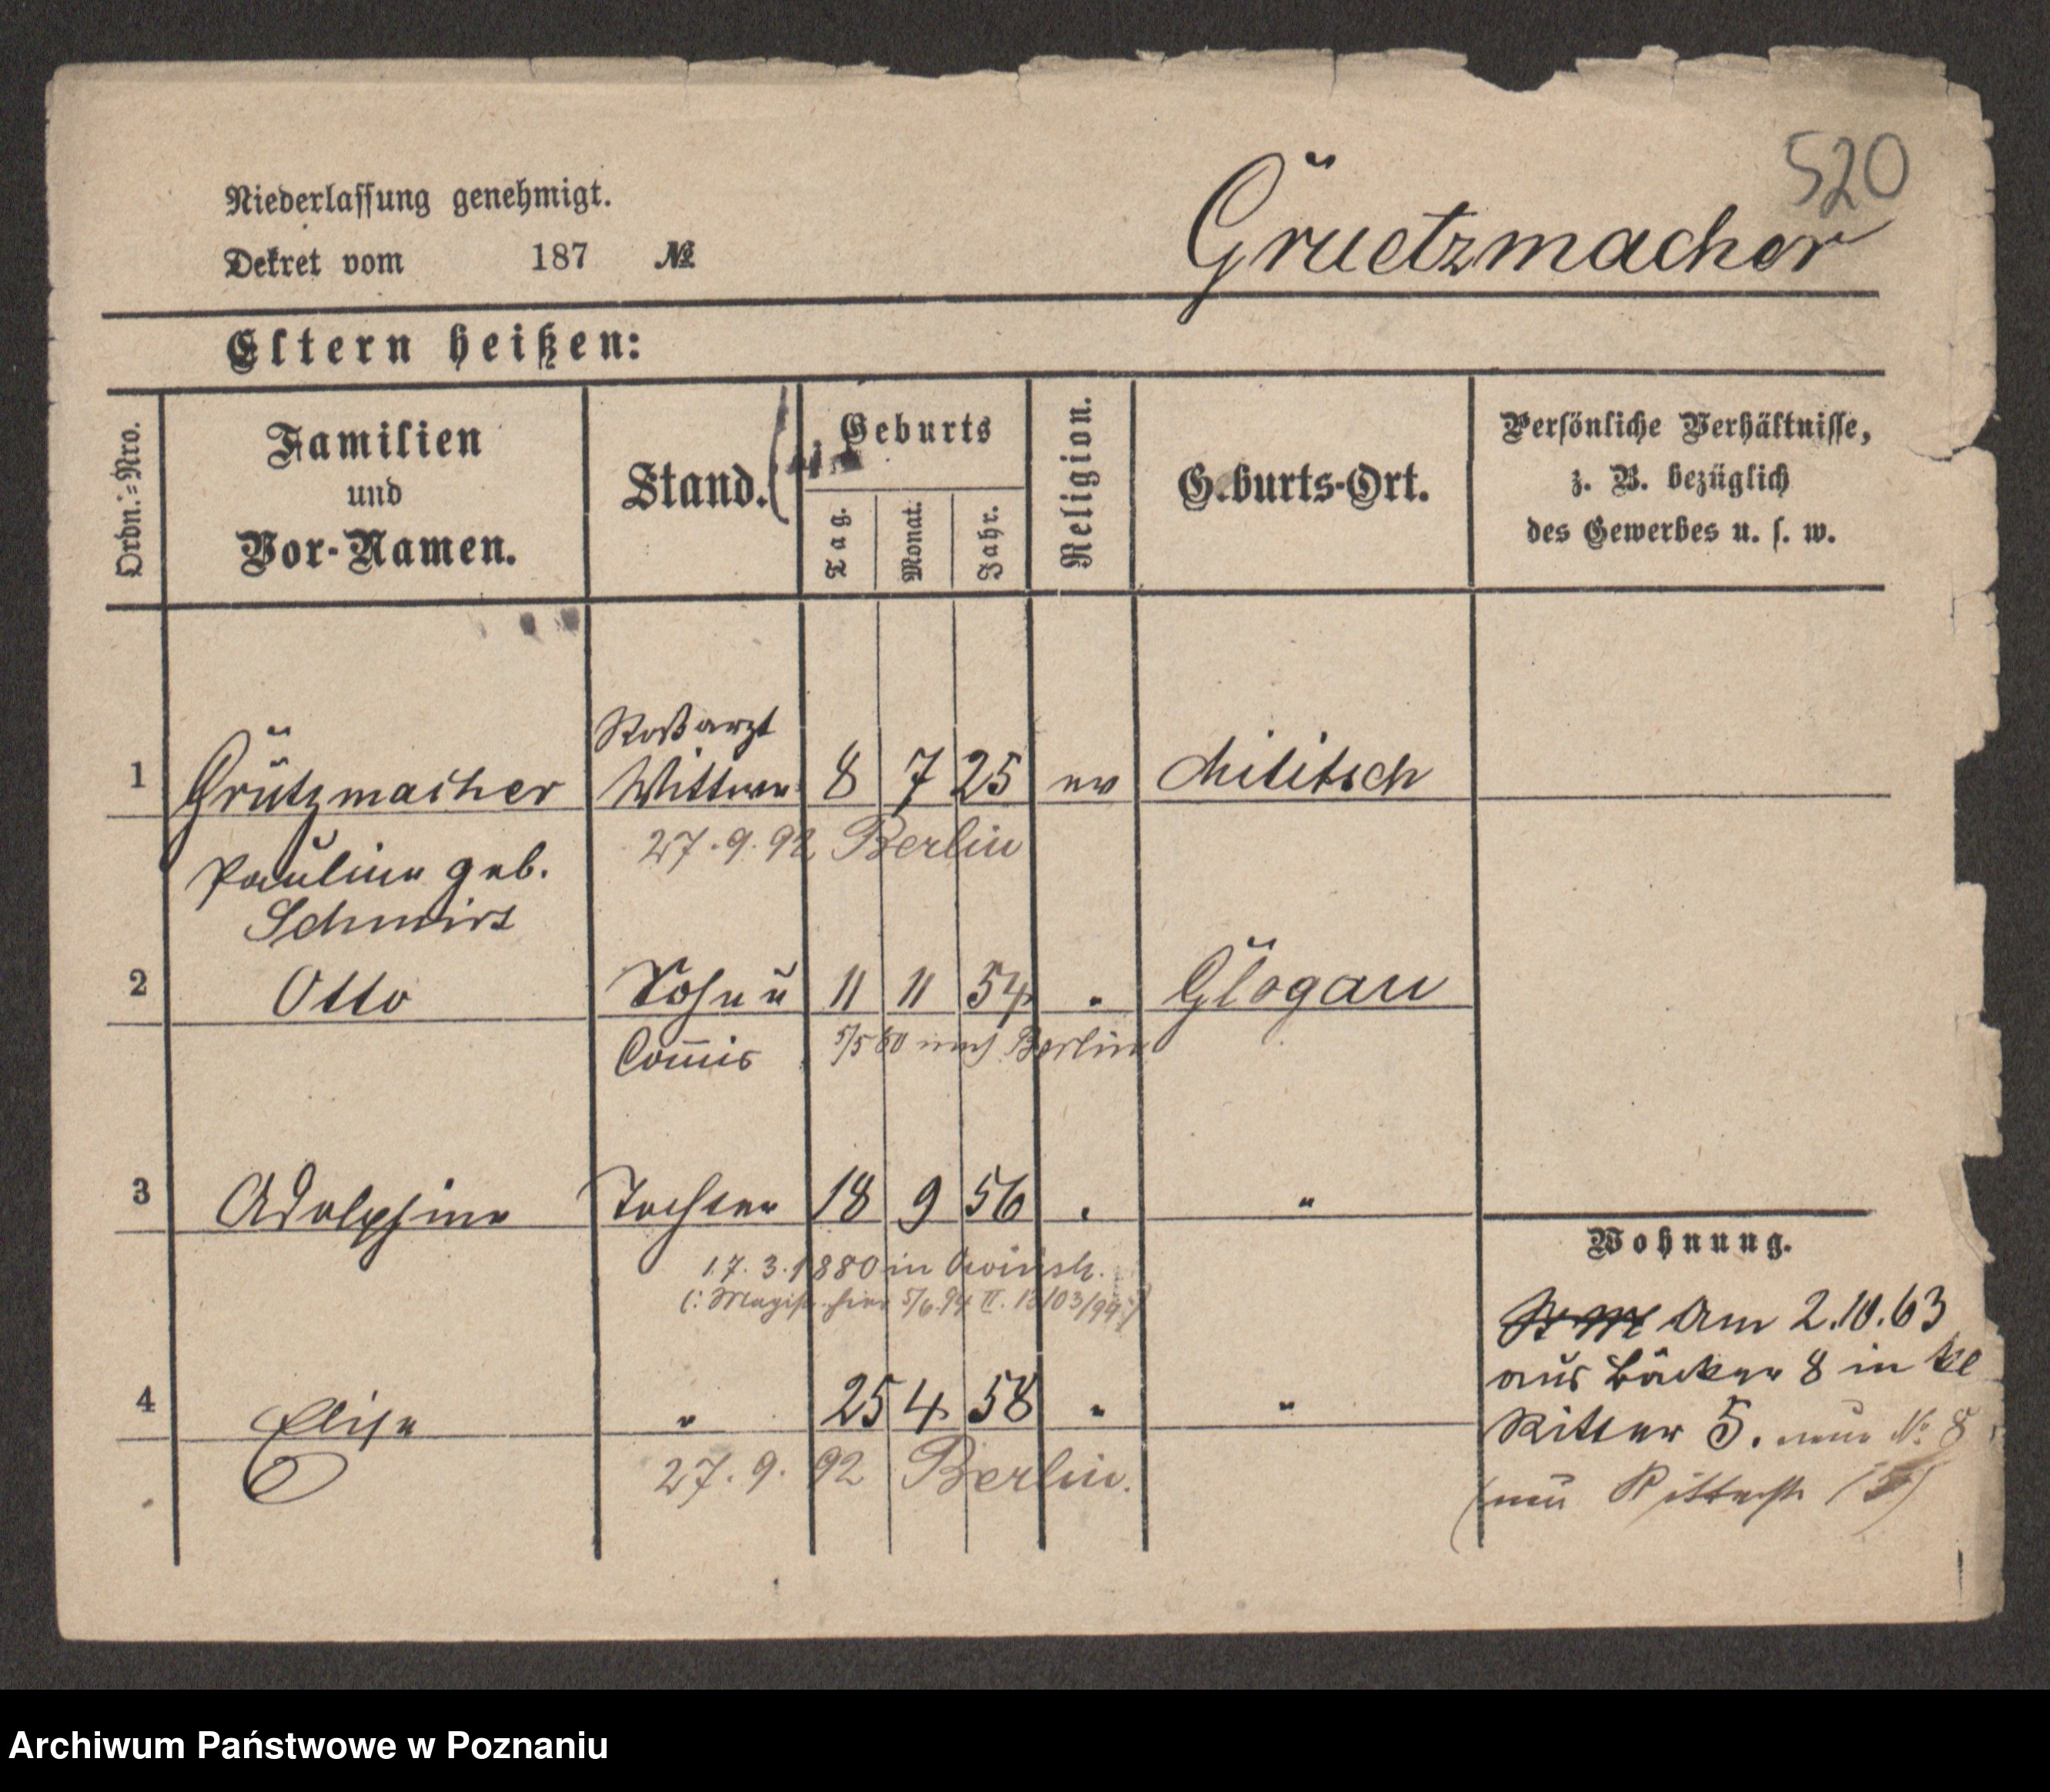 520
Niederlassung genehmigt.
Dekret vom 187 №
Grüetzmacher
Eltern heißen:
Ordn.=Nro.
Familien
und
Vor-Namen.
Stand.
Geburts
Tag.
Monat.
Jahr.
Religion.
Geburts-Ort.
Persönliche Verhältnisse,
z. B. bezüglich
des Gewerbes u. s. w.
Roßarzt
1 Grützmacher Wittwe 8 7 25 ev Militsch
27.9.92 Berlin
Pauline geb.
2 Otto Sohn u 11 11 54 " Glogau
Commis 5/5 80 nach Berlin
3 Adolphine Tochter 18 9 56 " "
17.3.1880 in
(: hier 5/6.94 II.
4 Elise " 25 4 58 " "
27.9.92 Berlin.
Wohnung.
Am 2.10.63
aus Bäcker 8 in kl
Ritter 5. nun № 8
(neu Ritterstr 15)
Archiwum Państwowe w Poznaniu